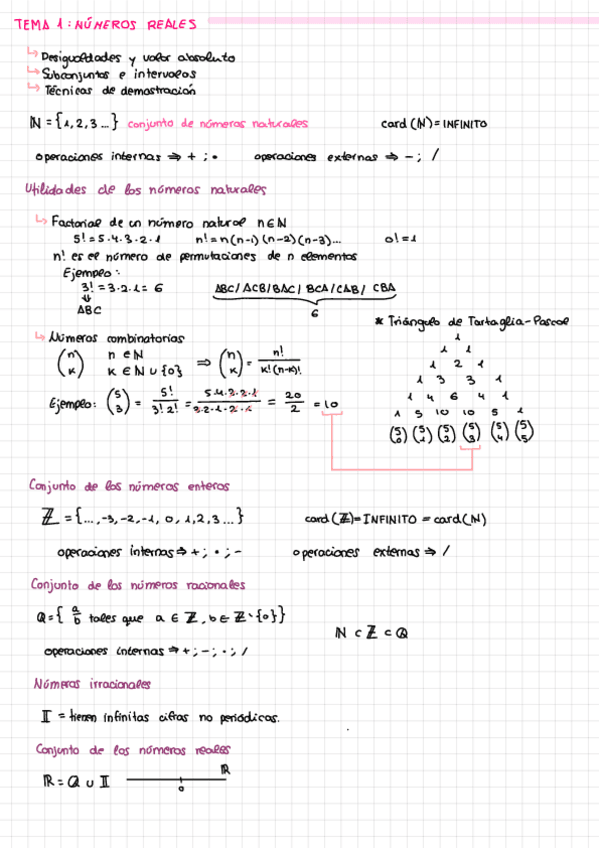 TEMA 1: NÚMEROS REALES
↳ Desigualdades y valor absoluto
↳ Subconjuntos e intervalos
↳ Técnicas de demostración
ℕ = {1, 2, 3 ...} conjunto de números naturales card (ℕ) = INFINITO
operaciones internas ⇒ + ; • operaciones externas ⇒ - ; /
Utilidades de los números naturales
↳ Factorial de un número natural n ∈ ℕ
5! = 5 · 4 · 3 · 2 · 1 n! = n (n-1) (n-2) (n-3) ... 0! = 1
n! es el número de permutaciones de n elementos
Ejemplo:
3! = 3 · 2 · 1 = 6 ABC / ACB / BAC / BCA / CAB / CBA
⇓
ABC
6
* Triángulo de Tartaglia-Pascal
1
1 1
1 2 1
1 3 3 1
1 4 6 4 1
1 5 10 10 5 1
(5 0) (5 1) (5 2) (5 3) (5 4) (5 5)
↳ Números combinatorios
(n k) n ∈ ℕ k ∈ ℕ ∪ {0} ⇒ (n k) = n! / k! (n-k)!
Ejemplo: (5 3) = 5! / 3! 2! = 5·4·3·2·1 / 3·2·1·2·1 = 20 / 2 = 10
Conjunto de los números enteros
ℤ = {..., -3, -2, -1, 0, 1, 2, 3 ...} card (ℤ) = INFINITO = card (ℕ)
operaciones internas ⇒ + ; • ; - operaciones externas ⇒ /
Conjunto de los números racionales
ℚ = { a/b tales que a ∈ ℤ, b ∈ ℤ \ {0} }
ℕ ⊂ ℤ ⊂ ℚ
operaciones internas ⇒ + ; - ; • ; /
Números irracionales
𝕀 = tienen infinitas cifras no periódicas.
Conjunto de los números reales
ℝ = ℚ ∪ 𝕀 ℝ
0